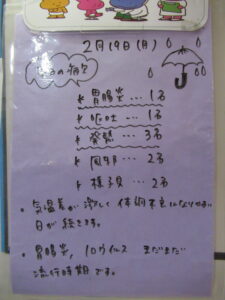 2月19日(月)
今日の病欠
* 胃腸炎 … 1名
* 嘔吐 … 1名
* 発熱 … 3名
* 風邪 … 2名
* 様子見 … 2名
・気温差が激しく体調不良になりやすい
日が続きます。
・胃腸炎, ロタウイルス まだまだ
流行時期です。